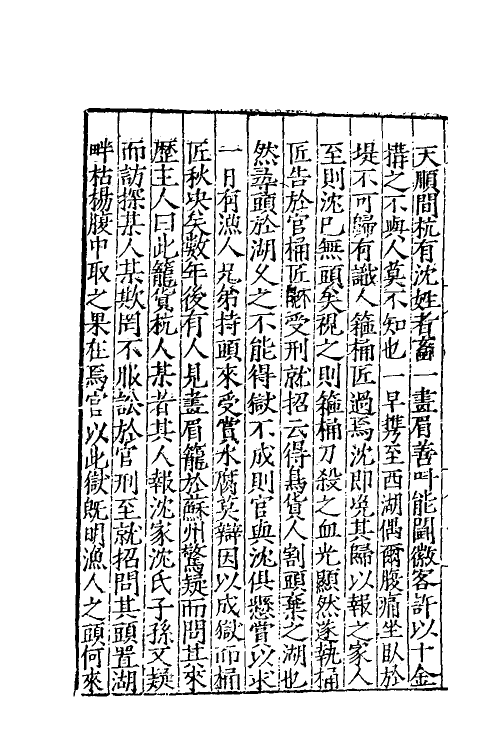 天順間杭有沈姓者畜一畫眉善叫能鬭徽客許以十金
搆之不與人莫不知也一早携至西湖偶爾腹痛坐臥於
堤不可歸有識人箍桶匠過焉沈即浼其歸以報之家人
至則沈已無頭矣視之則箍桶刀殺之血光顯然遂執桶
匠告於官桶匠受刑就招云得鳥貨人割頭棄之湖也
然尋頭於湖久之不能得獄不成則官與沈俱懸賞以求
一日有漁人兄弟持頭來受賞水腐莫辯因以成獄而桶
匠秋决矣數年後有人見畫眉籠於蘇州驚疑而問其來
歷主人曰此籠貨杭人某者其人報沈家沈氏子孫又疑
而訪探某人某欺罔不服訟於官刑至就招問其頭置湖
畔枯楊腹中取之果在焉官以此獄旣明漁人之頭何來